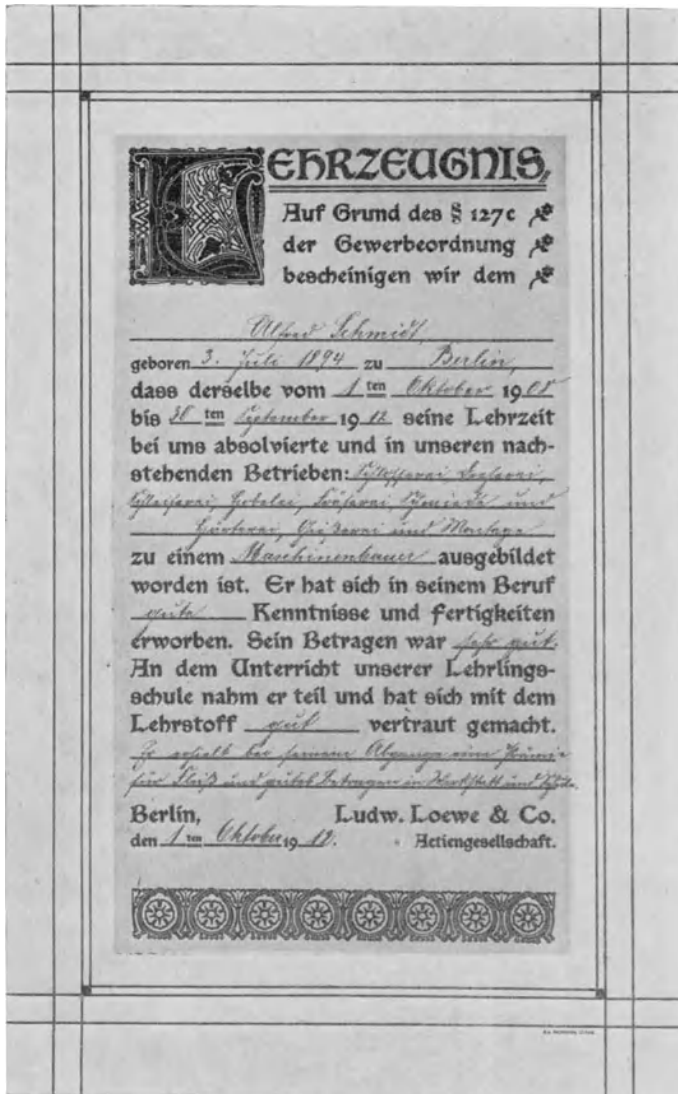 LEHRZEUGNIS,
Auf Grund des § 127c
der Gewerbeordnung
bescheinigen wir dem
Alfred Schmidt,
geboren 3. Juli 1894 zu Berlin,
dass derselbe vom 1 ten Oktober 1908
bis 30 ten September 1912 seine Lehrzeit
bei uns absolvierte und in unseren nach-
stehenden Betrieben: Schlosserei, Dreherei,
Schleiferei, Hobelei, Fräserei, Schmiede und
Härterei, Gießerei und Montage
zu einem Maschinenbauer ausgebildet
worden ist. Er hat sich in seinem Beruf
gute Kenntnisse und Fertigkeiten
erworben. Sein Betragen war sehr gut.
An dem Unterricht unserer Lehrlings-
schule nahm er teil und hat sich mit dem
Lehrstoff gut vertraut gemacht.
Er erhielt bei seinem Abgange eine Prämie
für Fleiß und gutes Betragen in Werkstatt und Schule.
Berlin, Ludw. Loewe & Co.
den 1 ten Oktober 1912. Actiengesellschaft.